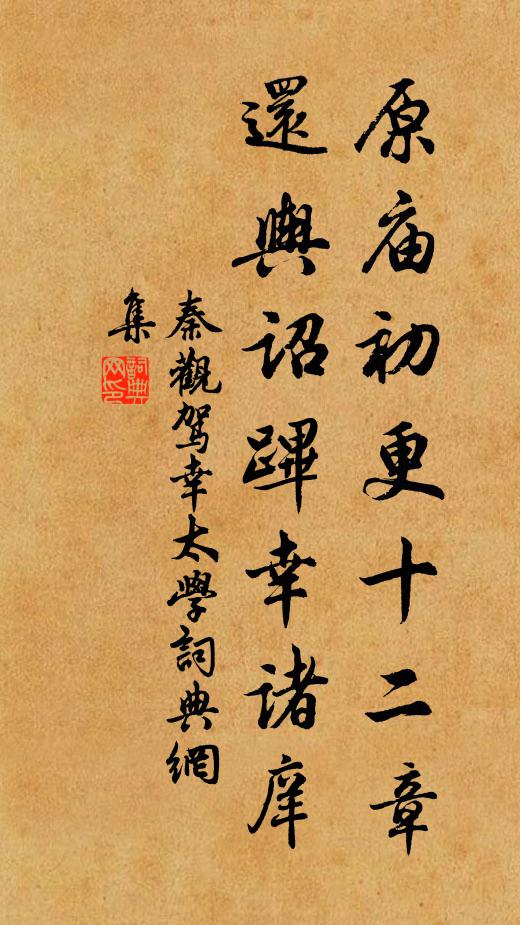 原庙初更十二章
還輿詔蹕幸諸庠
秦觀駕幸太學詞典網
集
詞典
网印